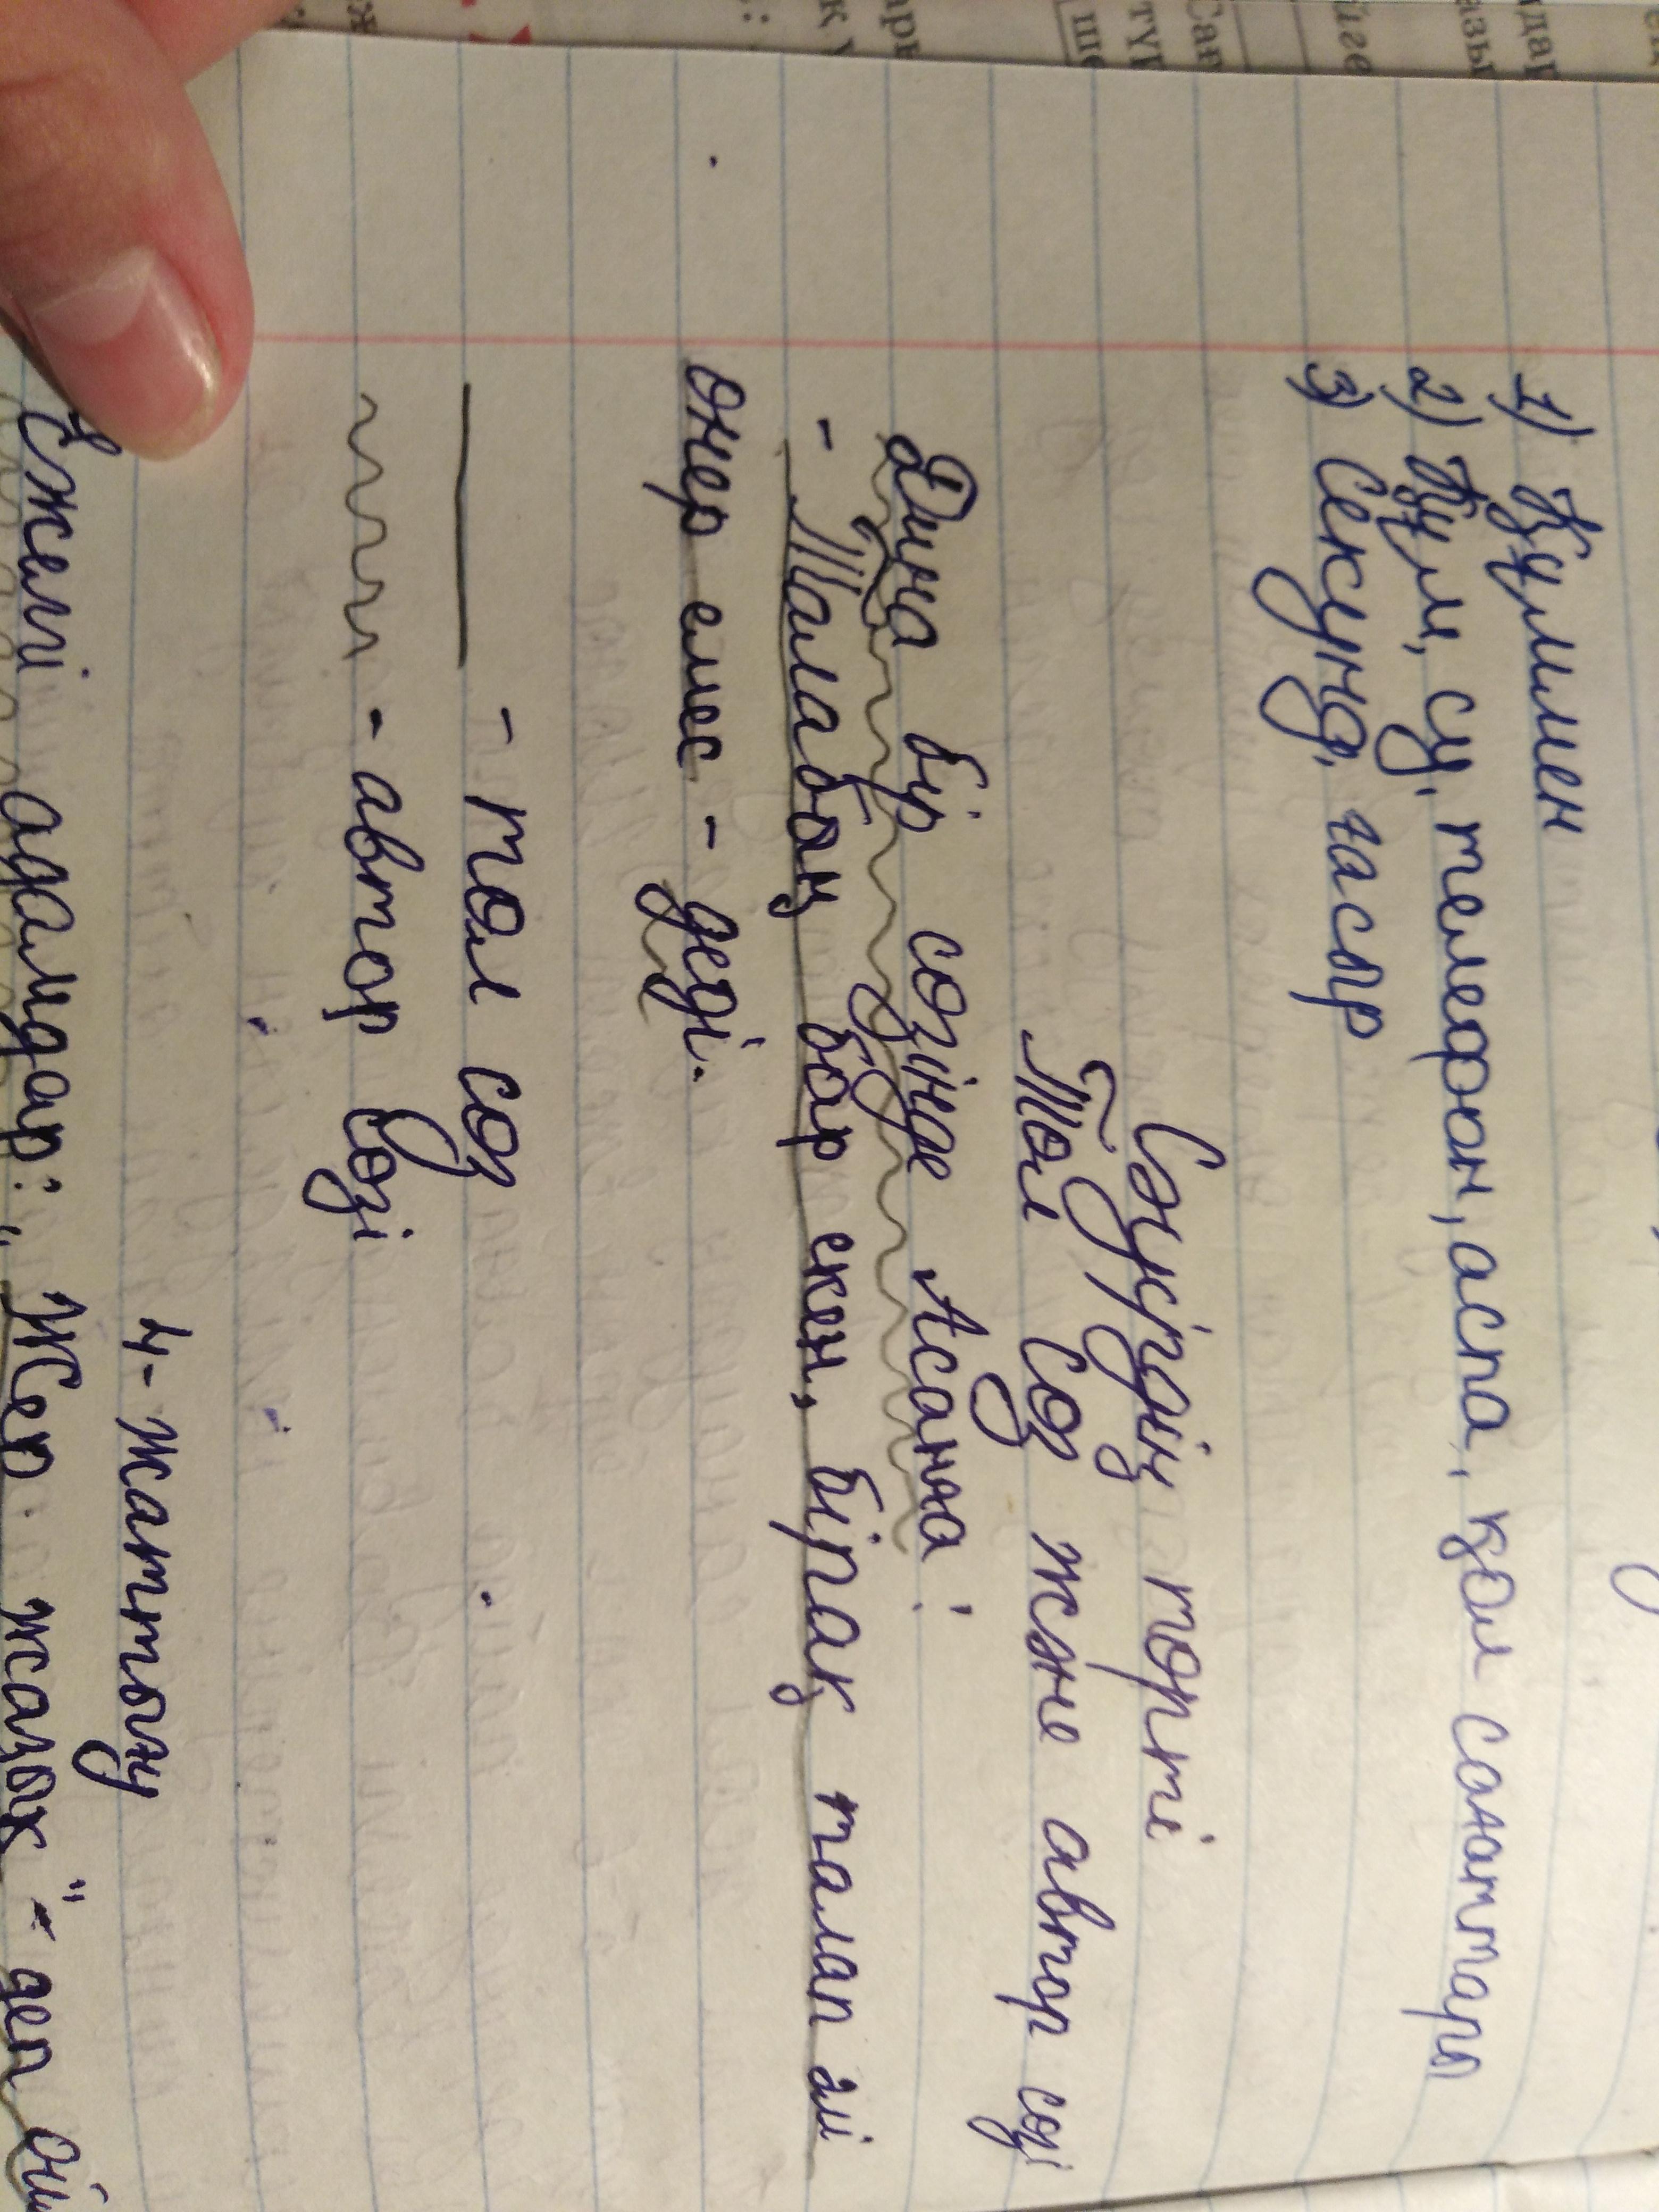 1) Құммен
2) Құм, су, телефон, аспа, қол сағаттары
3) Секунд, ғасыр
Сәкүірдің төрті
Төл Сөз және автор сөзі
Дина бір сөзінде Асанға:
- Талабың бар екен, бірақ талап әлі
өнер емес - деді.
- төл сөз
- автор Сөзі
4-жаттығу
Ежелгі адамдар: „Жер жазық" - деп ой